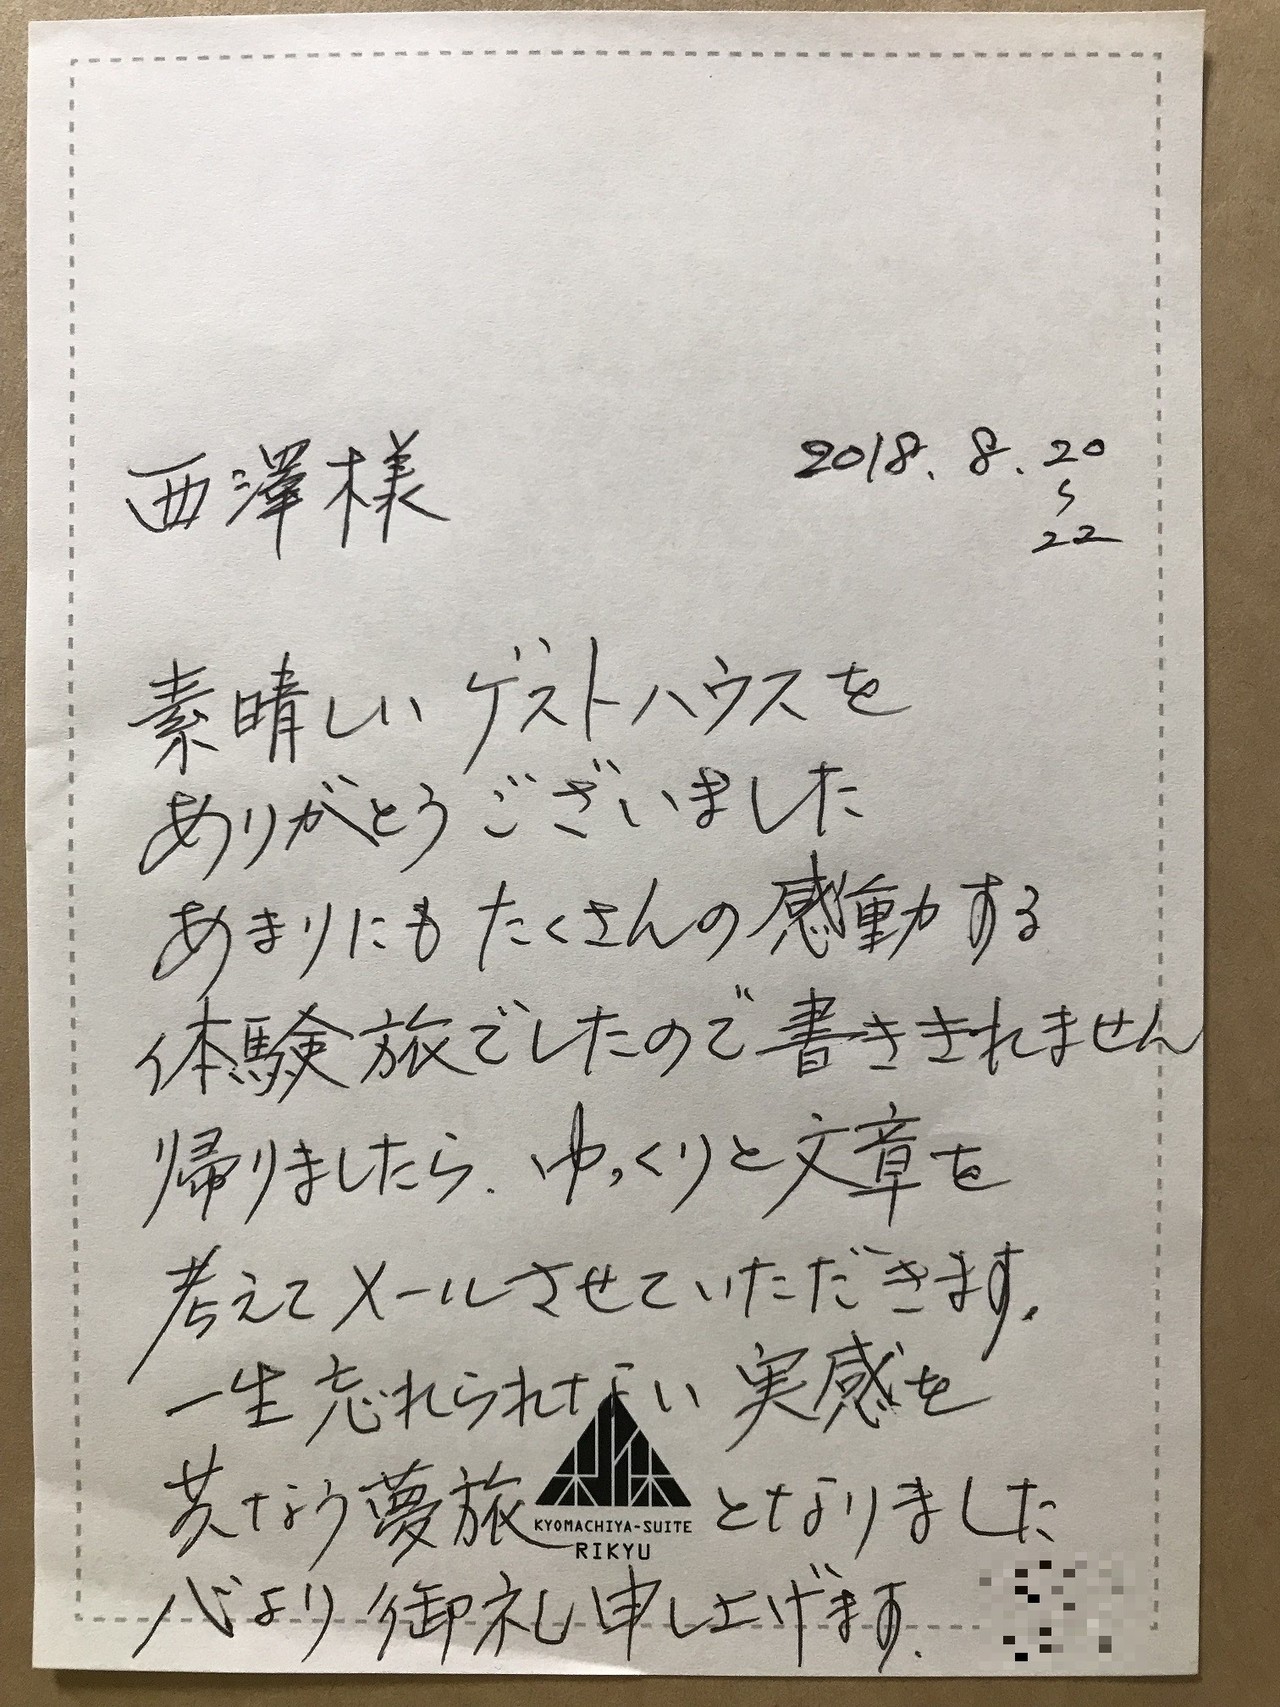 西澤様
2018.8.20
〜
22
素晴しいゲストハウスを
ありがとうございました
あまりにもたくさんの感動する
体験旅でしたので書ききれません
帰りましたら、ゆっくりと文章を
考えてメールさせていただきます。
一生忘れられない実感を
共なう夢旅となりました
KYOMACHIYA-SUITE
RIKYU
心より御礼申し上げます。